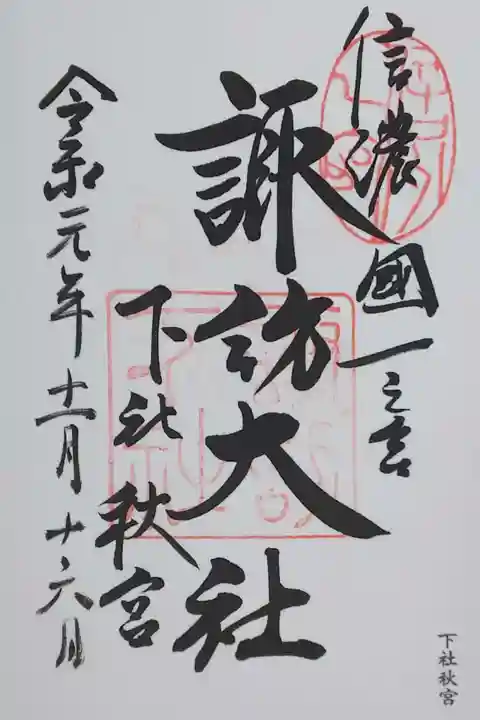 信濃國一之宮
諏訪大社
下社秋宮
令和元年十一月十六日
下社秋宮